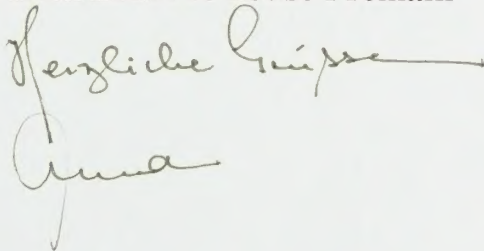 Herzliche Grüsse
Anna